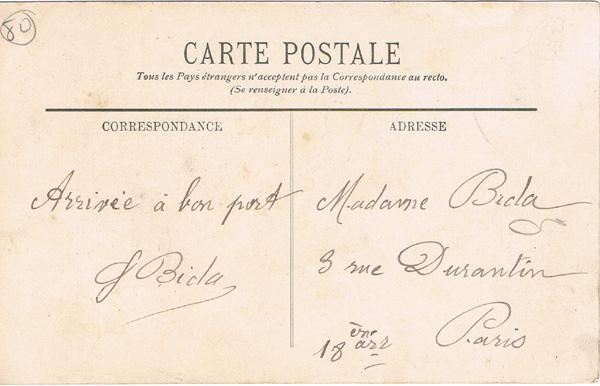 80
CARTE POSTALE
Tous les Pays étrangers n'acceptent pas la Correspondance au recto.
(Se renseigner à la Poste).
CORRESPONDANCE
ADRESSE
Arrivée à bon port
Bida
Madame Bida
8 rue Durantin
Paris
18 èm arr